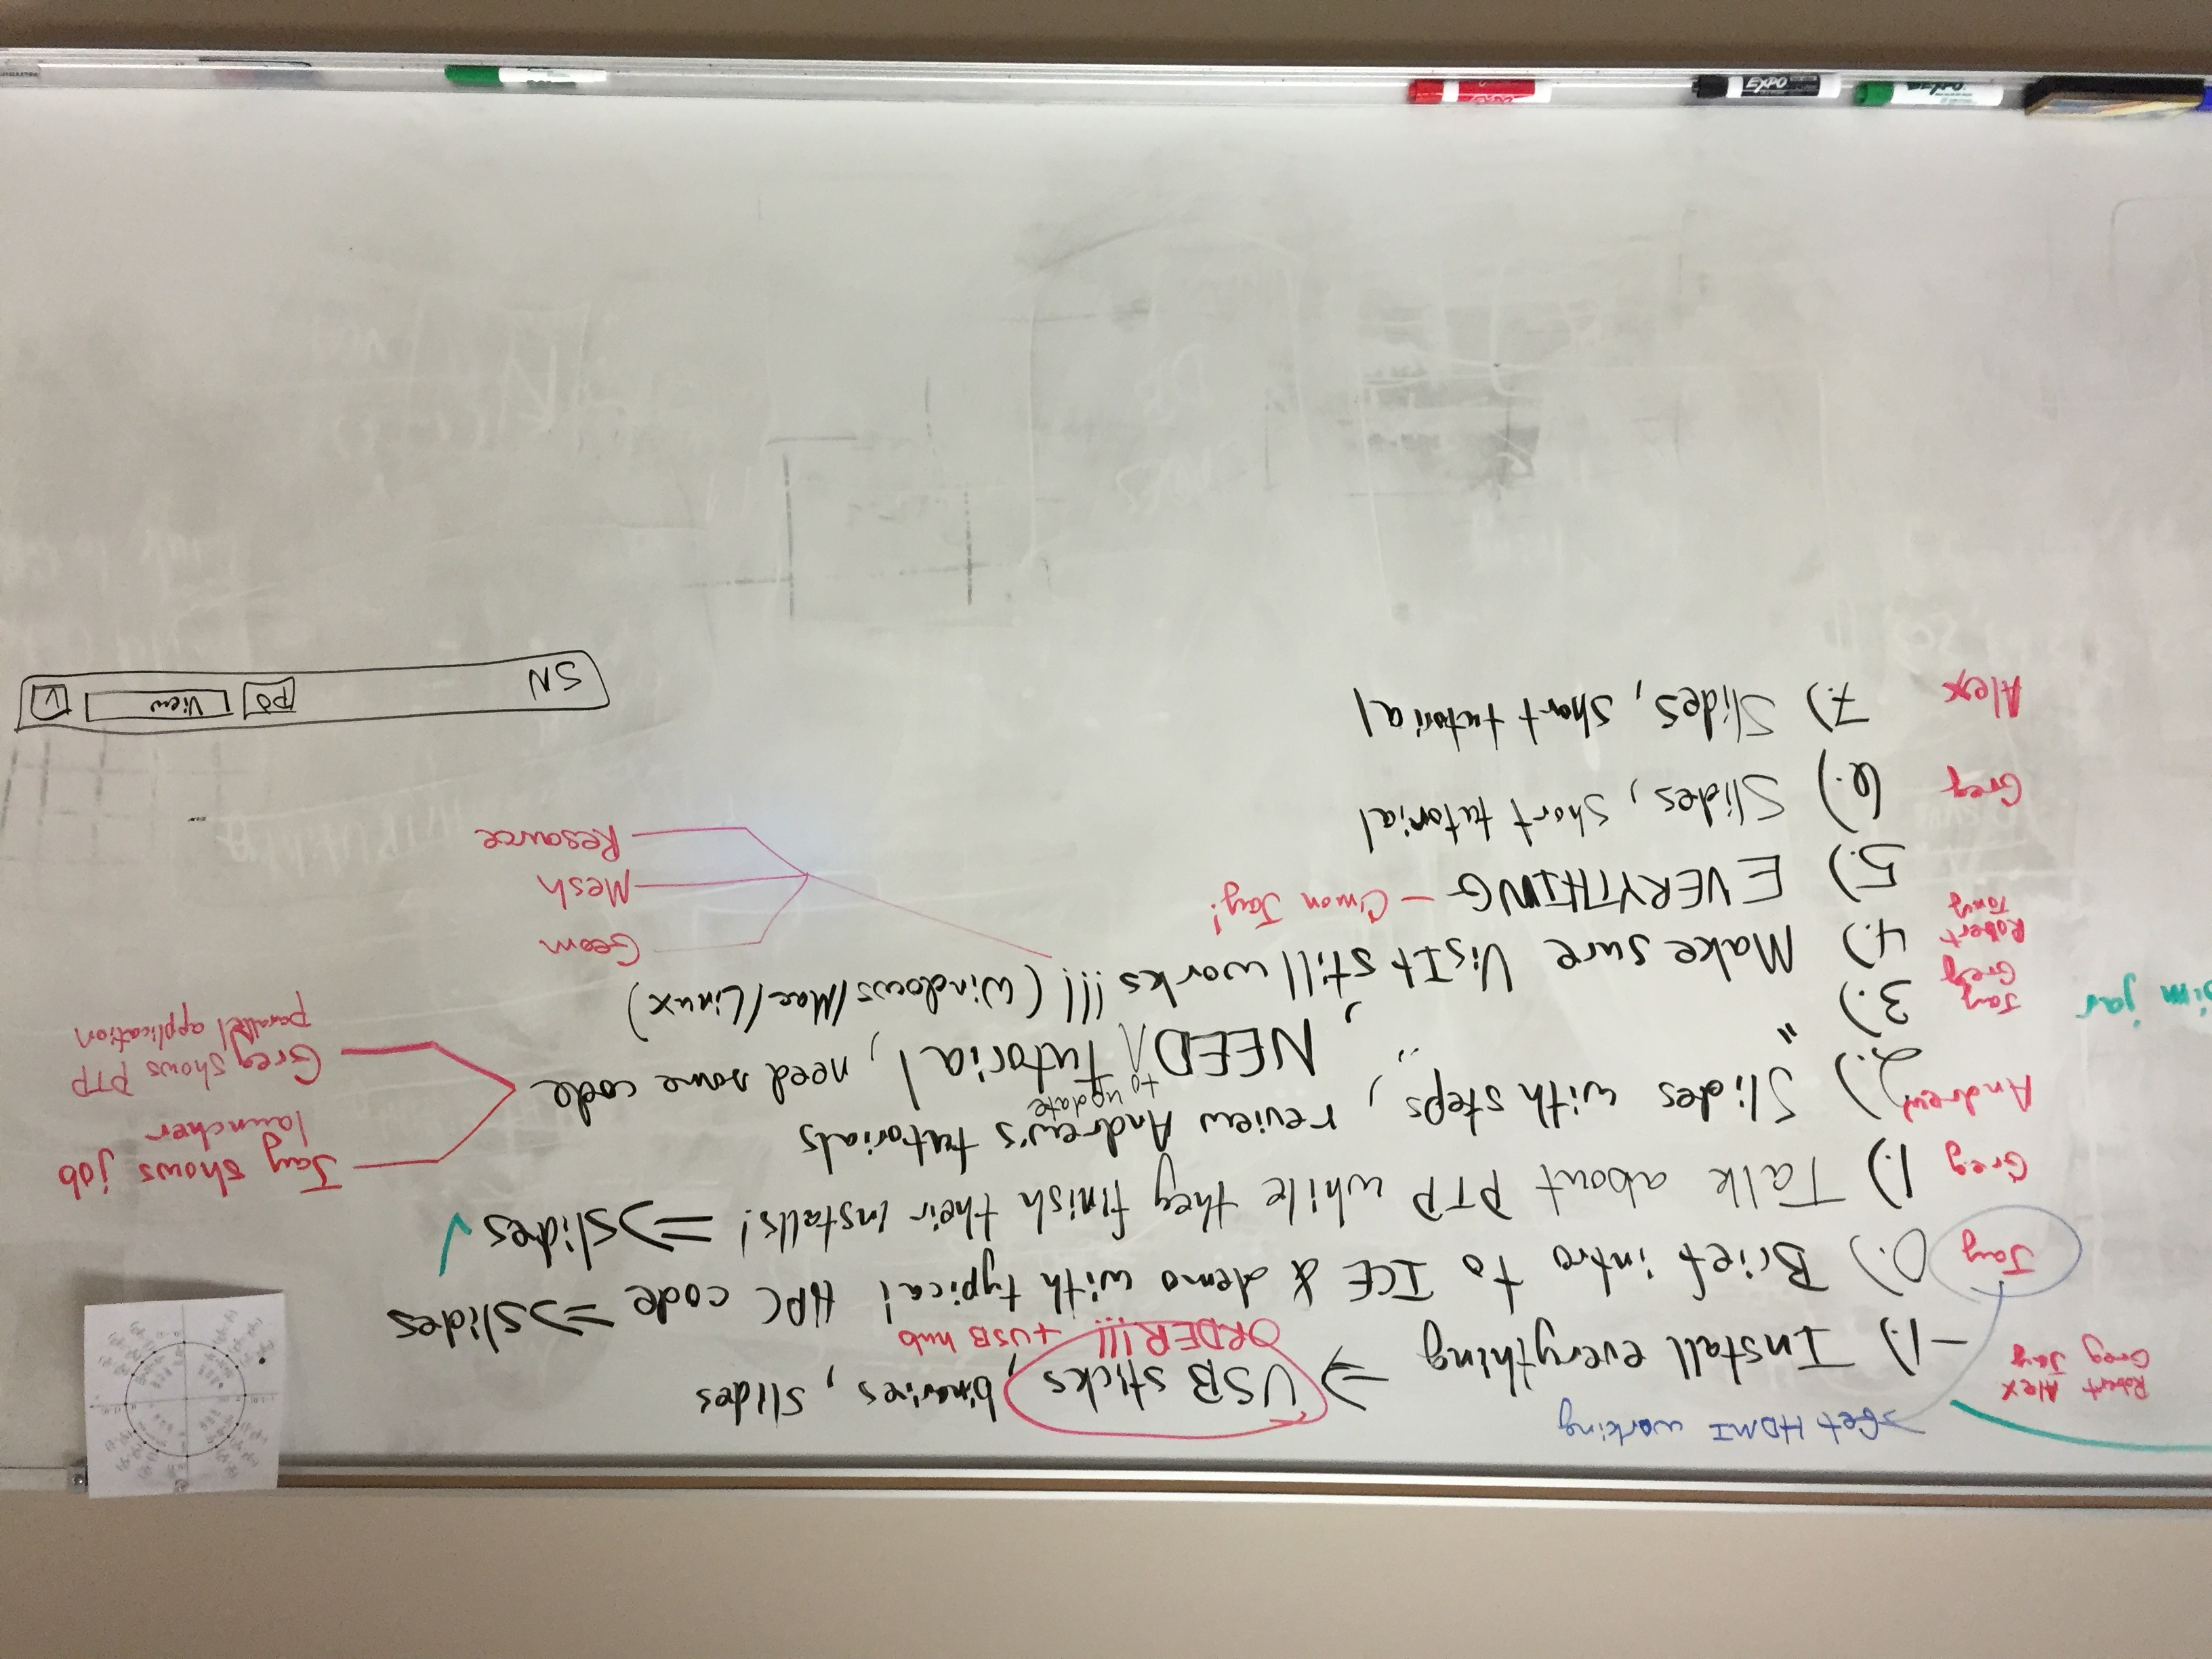 →Get HDMI working
Robert Alex
Greg Jay
-1.) Install everything ⇒ USB sticks, binaries, slides
ORDER!!! +USB hub
Jay 0.) Brief intro to ICE & demo with typical HPC code ⇒ slides
Greg 1.) Talk about PTP while they finish their installs! ⇒ slides ✓
Andrew 2.) Slides with steps, review Andrew's tutorials
to update
Jay Greg 3.) " , NEED Tutorial, need some code
Jay shows job
launcher
Greg shows PTP
parallel application
Robert Tony 4.) Make sure VisIt still works!!! (Windows/Mac/Linux)
Geom
Mesh
Resource
5.) EVERYTHING - C'mon Jay!
Greg 6.) Slides, short tutorial
Alex 7.) Slides, short tutorial
SN PO View
jar
EXPO
EXPO
EXPO